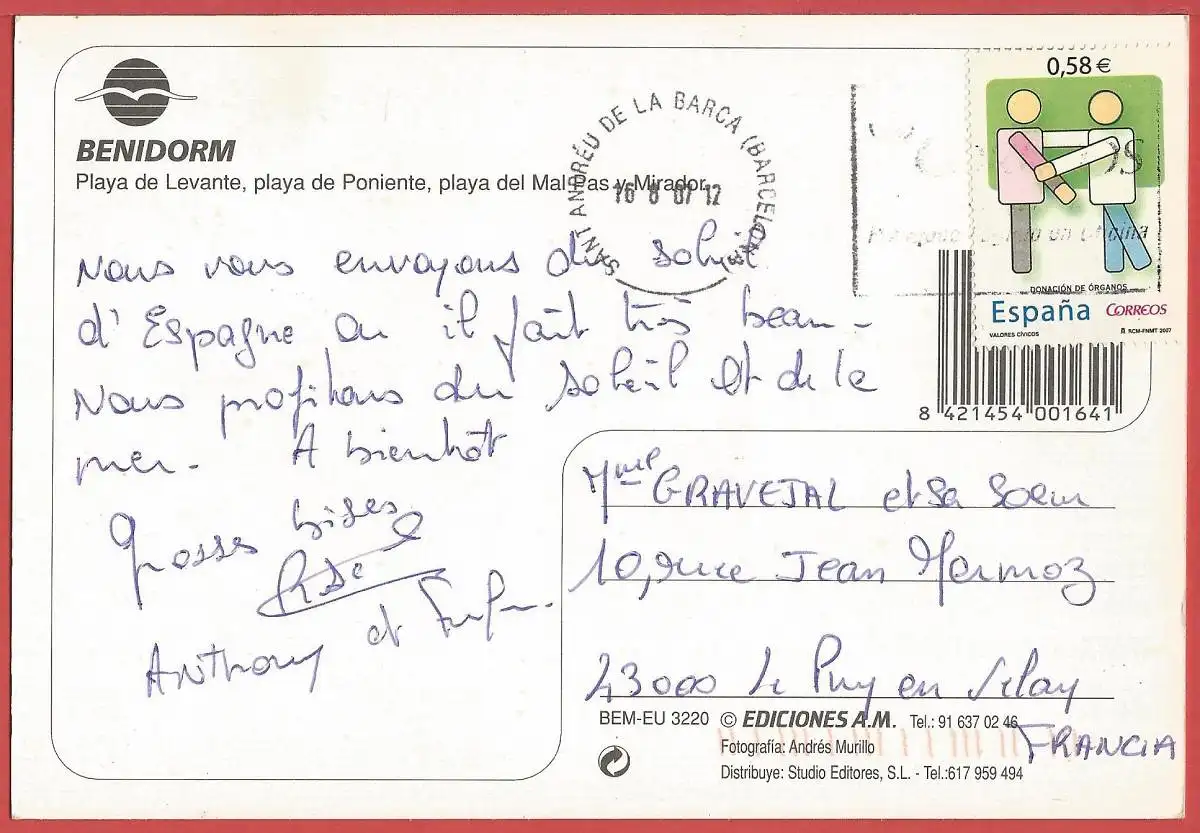 BENIDORM
Playa de Levante, playa de Poniente, playa del Mal Pas y Mirador.
SANT ANDRÉU DE LA BARCA (BARCELONA)
16 8 07 12
0,58 €
DONACIÓN DE ÓRGANOS
España CORREOS
VALORES CÍVICOS RCM-FNMT 2007
8 421454 001641
Nous vous envoyons du soleil
d'Espagne ou il fait très beau.
Nous profitons du soleil et de la
mer. A bientôt
Grosses bises
Anthony et
Mme GRAVEJAL et sa soeur
10, rue Jean Mermoz
43000 Le Puy en Velay
FRANCIA
BEM-EU 3220 © EDICIONES A.M. Tel.: 91 637 02 46
Fotografía: Andrés Murillo
Distribuye: Studio Editores, S.L. - Tel.:617 959 494